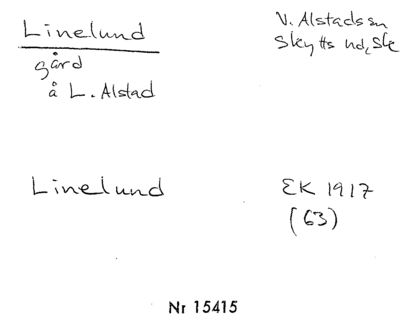 Linelund
gård
å L. Alstad
V. Alstads sn
Skytts hd, Sk
Linelund
EK 1917
(63)
Nr 15415